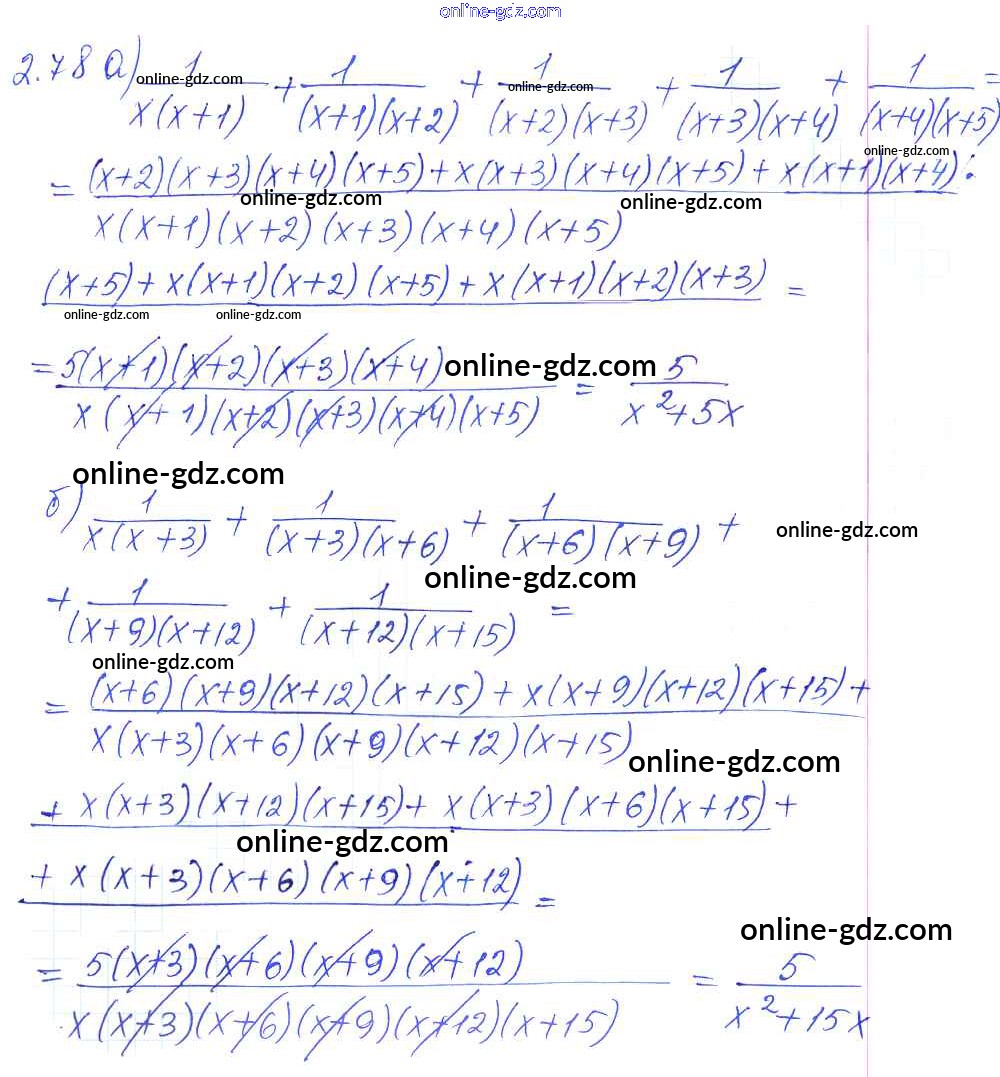 online-gdz.com
2.78 а) 1/(x(x+1)) + 1/((x+1)(x+2)) + 1/((x+2)(x+3)) + 1/((x+3)(x+4)) + 1/((x+4)(x+5)) =
online-gdz.com
online-gdz.com
online-gdz.com
= (x+2)(x+3)(x+4)(x+5)+x(x+3)(x+4)(x+5)+x(x+1)(x+4):
online-gdz.com
online-gdz.com
x(x+1)(x+2)(x+3)(x+4)(x+5)
(x+5)+x(x+1)(x+2)(x+5)+x(x+1)(x+2)(x+3) =
online-gdz.com
online-gdz.com
= 5(x+1)(x+2)(x+3)(x+4)/(x(x+1)(x+2)(x+3)(x+4)(x+5)) = 5/(x²+5x)
online-gdz.com
online-gdz.com
б) 1/(x(x+3)) + 1/((x+3)(x+6)) + 1/((x+6)(x+9)) +
online-gdz.com
online-gdz.com
+ 1/((x+9)(x+12)) + 1/((x+12)(x+15)) =
online-gdz.com
= (x+6)(x+9)(x+12)(x+15)+x(x+9)(x+12)(x+15)+
x(x+3)(x+6)(x+9)(x+12)(x+15)
online-gdz.com
+ x(x+3)(x+12)(x+15)+ x(x+3)(x+6)(x+15)+
online-gdz.com
+ x(x+3)(x+6)(x+9)(x+12) =
online-gdz.com
= 5(x+3)(x+6)(x+9)(x+12)/(x(x+3)(x+6)(x+9)(x+12)(x+15)) = 5/(x²+15x)